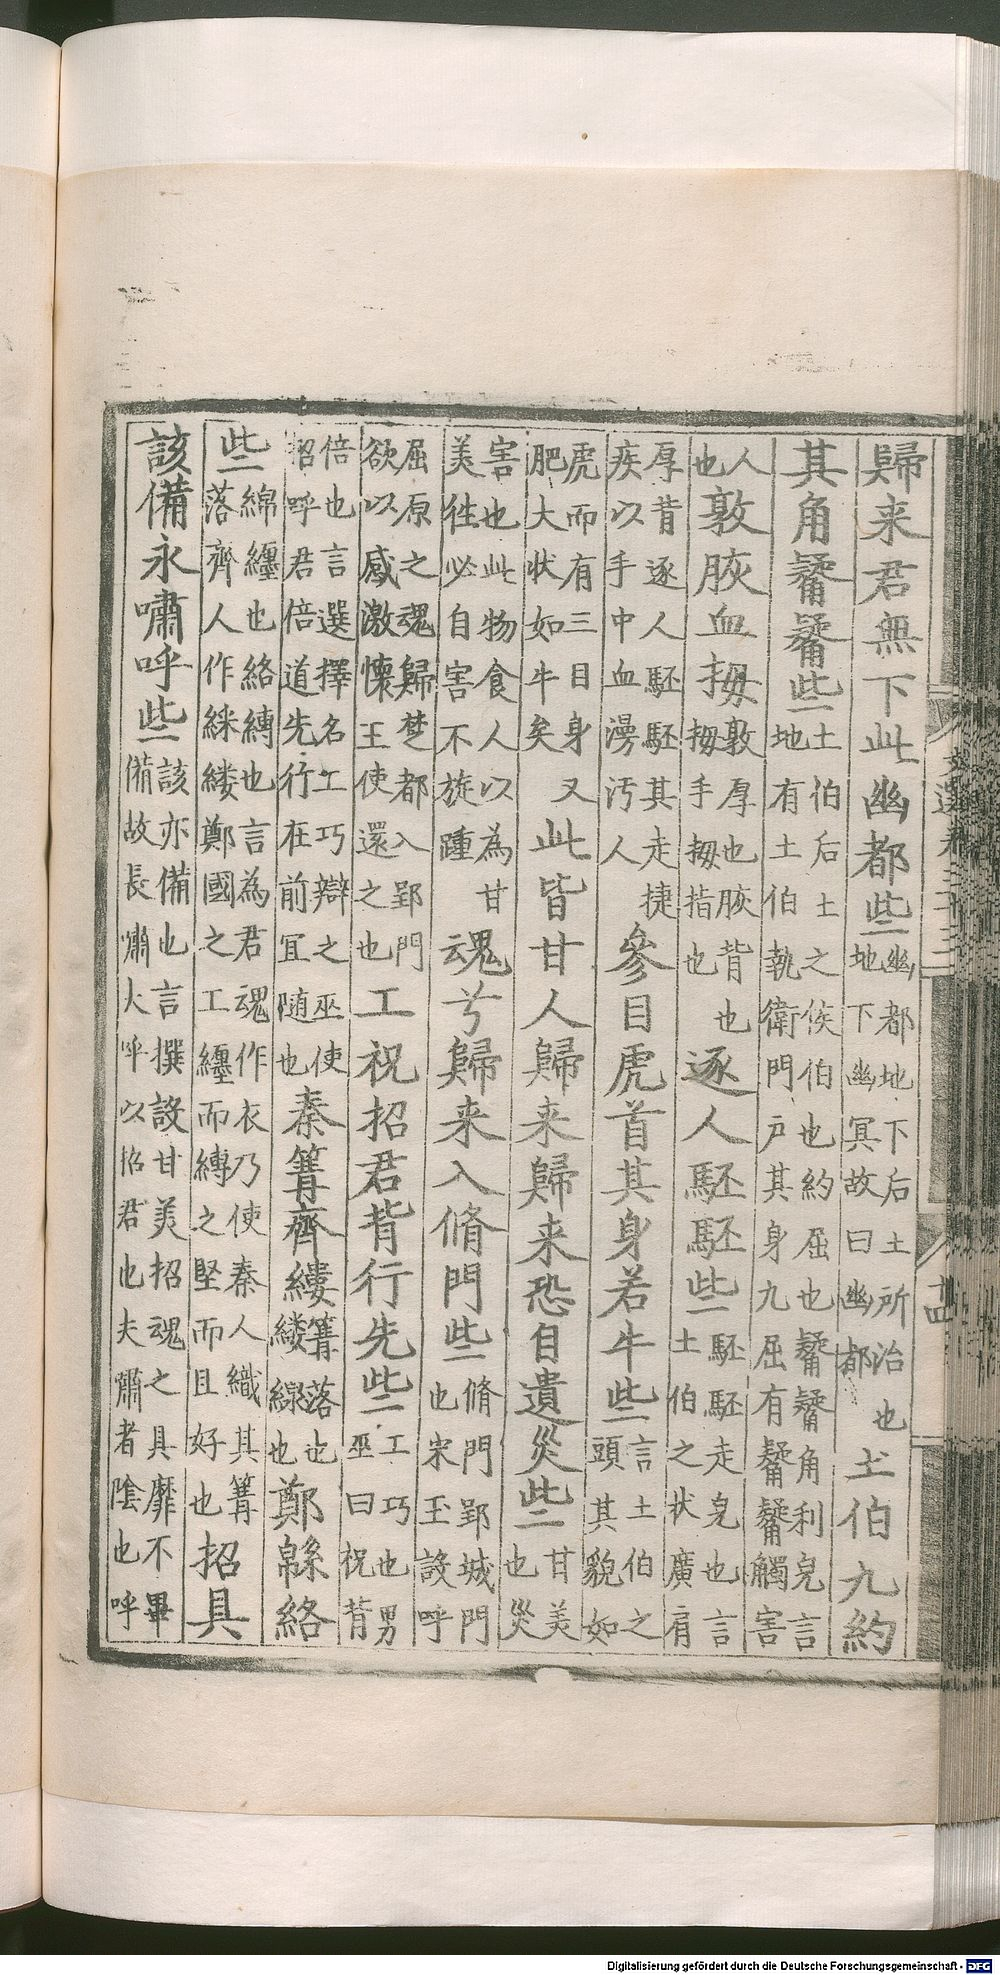 歸来君無下此幽都些幽都地下后土所治也地下幽冥故曰幽都土伯九約
其角觺觺些土伯后土之侯伯也約屈也觺觺角利皃言地有土伯執衛門户其身九屈有觺觺觸害
人也敦脄血拇敦厚也脄背也拇手拇指也逐人駓駓些駓駓走皃也言土伯之状廣肩
厚背逐人駓駓其走捷疾以手中血漫汚人參目虎首其身若牛些言土伯之頭其貌如
虎而有三目身又肥大状如牛矣此皆甘人歸来歸来恐自遺災些甘美也災
害也此物食人以為甘美徃必自害不旋踵魂兮歸来入脩門些脩門郢城門也宋玉設呼
屈原之魂歸楚都入郢門欲以感激懷王使還之也工祝招君背行先些工巧也男巫曰祝背
倍也言選擇名工巧辯之巫使招呼君倍道先行在前冝随也秦篝齊縷篝落也縷線也鄭緜絡
些綿纏也絡縛也言為君魂作衣乃使秦人織其篝落齊人作綵縷鄭國之工纏而縛之堅而且好也招具
該備永嘯呼些該亦備也言撰設甘羙招魂之具靡不畢備故長嘯大呼以招君也夫嘯者隂也呼
文選卷三十三
十四
Digitalisierung gefördert durch die Deutsche Forschungsgemeinschaft - DFG